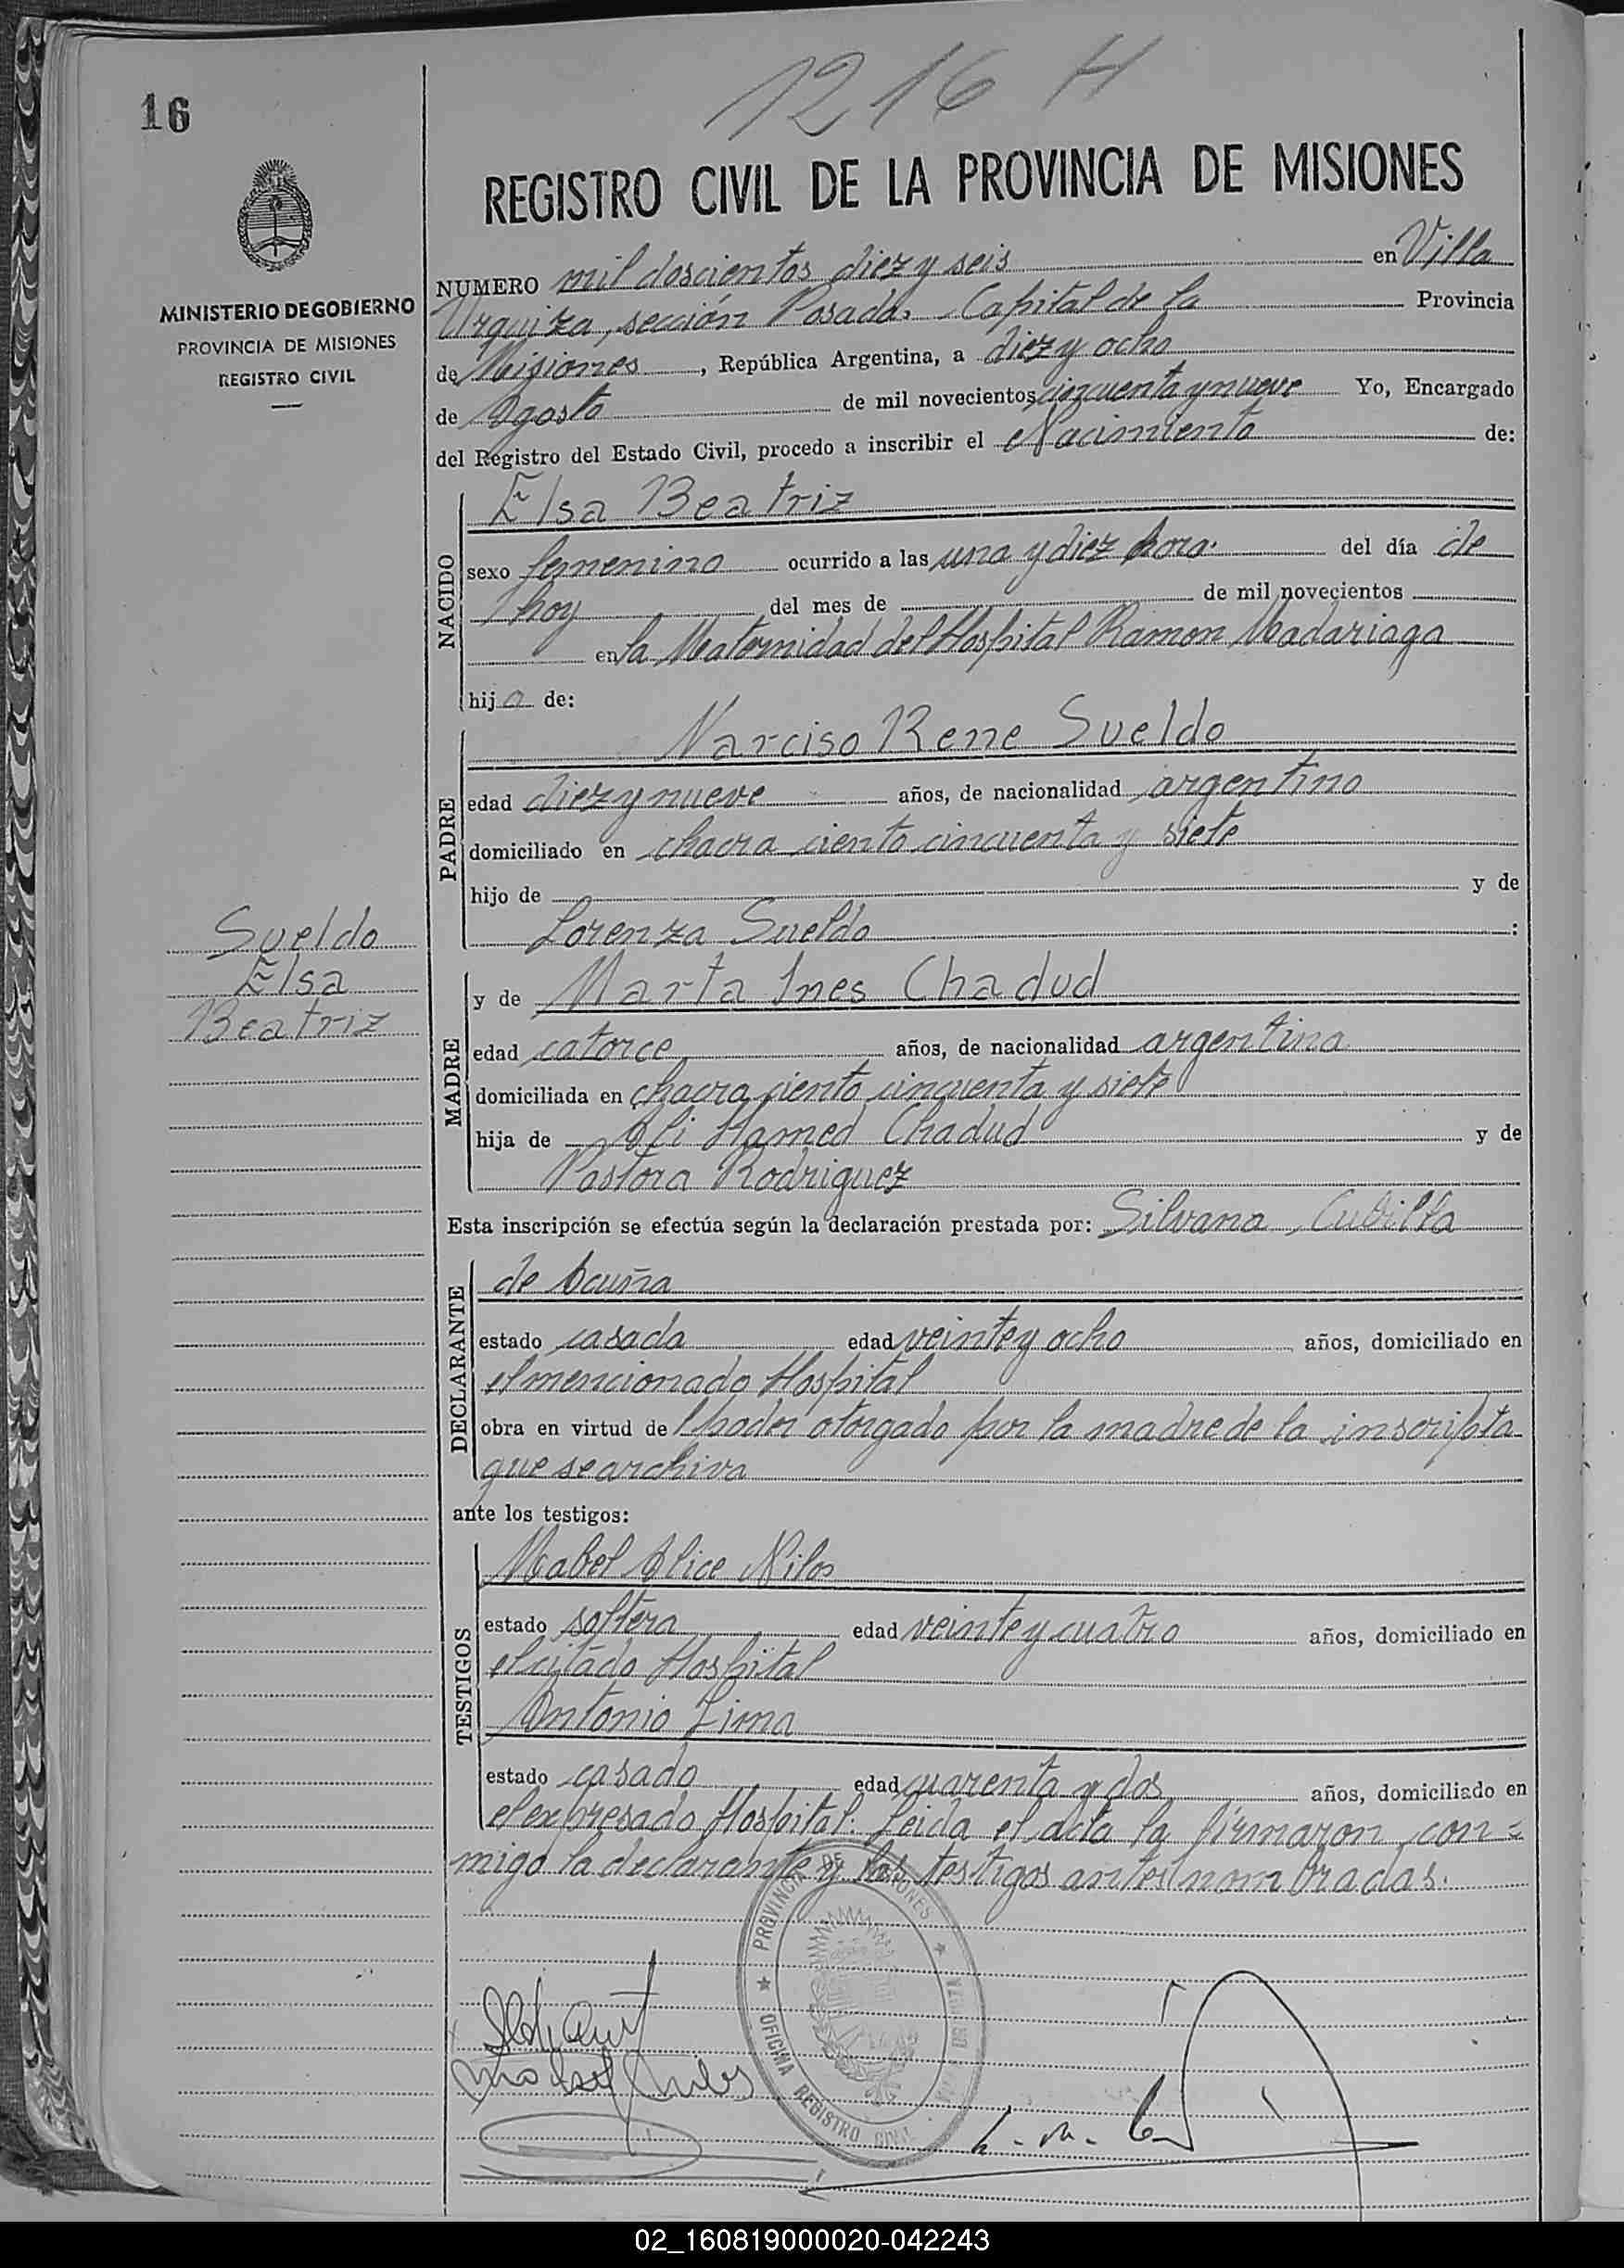 1216 H
16
REGISTRO CIVIL DE LA PROVINCIA DE MISIONES
MINISTERIO DE GOBIERNO
PROVINCIA DE MISIONES
REGISTRO CIVIL
NUMERO mil doscientos diez y seis en Villa
Urquiza, sección Posadas Capital de la Provincia
de Misiones, República Argentina, a diez y ocho
de Agosto de mil novecientos cincuenta y nueve Yo, Encargado
del Registro del Estado Civil, procedo a inscribir el Nacimiento de:
NACIDO
Elsa Beatriz
sexo femenino ocurrido a las una y diez hora del día de
hoy del mes de de mil novecientos
en la Maternidad del Hospital Ramon Madariaga
hija de:
PADRE
Narciso Rene Sueldo
edad diez y nueve años, de nacionalidad argentino
domiciliado en chacra ciento cincuenta y siete
hijo de y de
Lorenza Sueldo :
Sueldo
Elsa
Beatriz
MADRE
y de Marta Ines Chadud
edad catorce años, de nacionalidad argentina
domiciliada en chacra ciento cincuenta y siete
hija de Ali Hamed Chadud y de
Pastora Rodriguez
Esta inscripción se efectúa según la declaración prestada por: Silvana Cubilla
DECLARANTE
de Acuña
estado casada edad veinte y ocho años, domiciliado en
el mencionado Hospital
obra en virtud de poder otorgado por la madre de la inscripta
que se archiva
ante los testigos:
TESTIGOS
Mabel Alice Nilos
estado soltera edad veinte y cuatro años, domiciliado en
el citado Hospital
Antonio Lima
estado casado edad cuarenta y dos años, domiciliado en
el expresado Hospital. Leida el acta la firmaron con=
migo la declarante y los testigos antes nombradas.
PROVINCIA DE MISIONES
OFICINA REGISTRO CIVIL
02_160819000020-042243